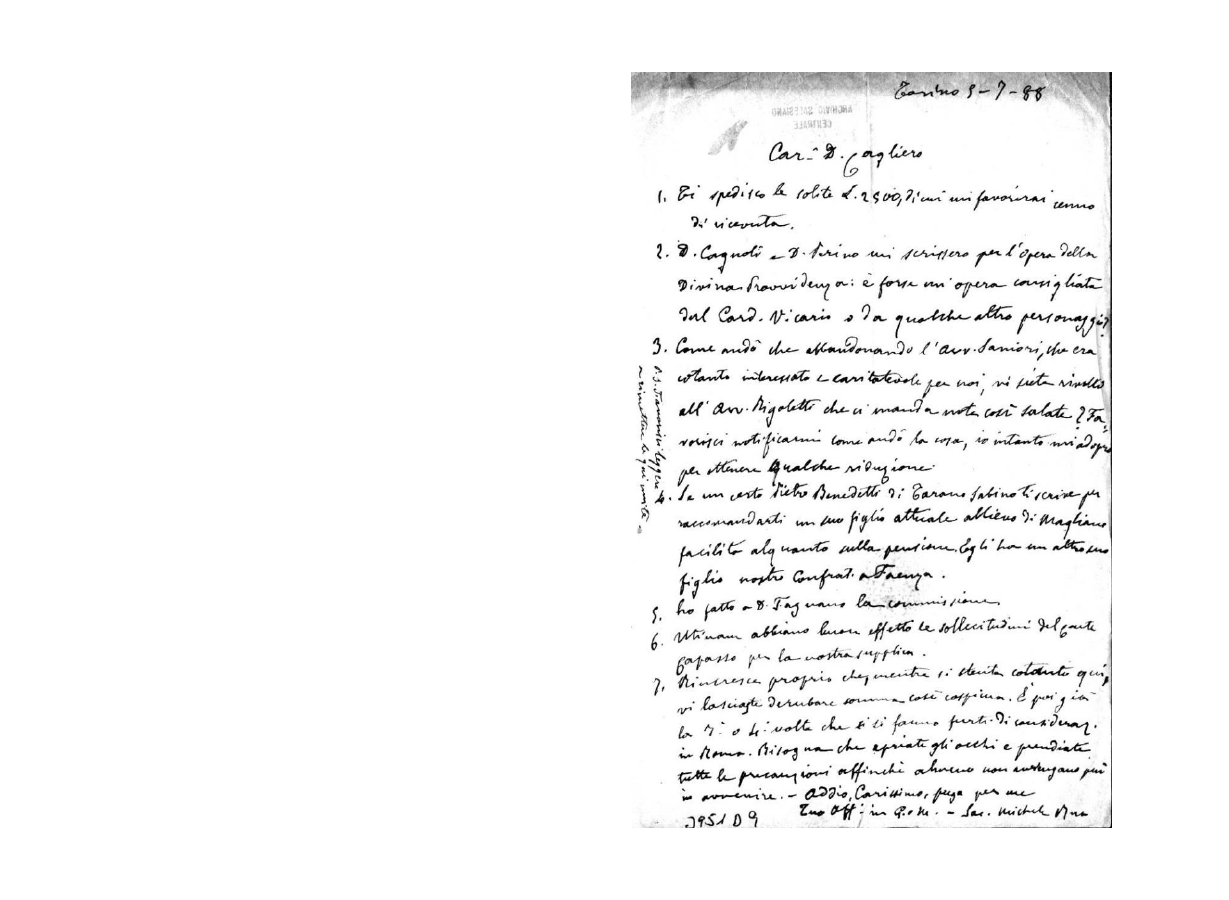 Torino 5-7-88
ARCHIVIO SALESIANO
CENTRALE
Car.º D. Cagliero
1. Ti spedisco le solite L. 2500, di cui mi favorirai cenno
di ricevuta.
2. D. Cagnoli e D. Perino mi scrissero per l'opera della
Divina Provvidenza: è forse un'opera consigliata
dal Card. Vicario o da qualche altro personaggio?
3. Come andò che abbandonando l'Avv. che era
cotanto interessato e caritatevole per noi, vi siete rivolto
all'Avv. Rigoletti che ci manda note così salate? Fa-
vorisci notificarmi come andò la cosa, io intanto mi adopro
per ottenere qualche riduzione.
4. Se un certo Pietro Benedetti di Tarano Sabino ti scrive per
raccomandarti un suo figlio attuale allievo di Magliano
facilita alquanto sulla pensione. Egli ha un altro suo
figlio nostro Confrat. a Faenza.
5. ho fatto a D. Fagnano la commissione
6. Utinam abbiano buon effetto le sollecitudini del conte
Capasso per la nostra supplica.
7. Rincresce proprio che, mentre si stenta cotanto qui,
vi lasciaste derubare somma così cospicua. È poi già
la 3ª o 4ª volta che si fanno furti di consideraz.
in Roma. Bisogna che apriate gli occhi e prendiate
tutte le precauzioni affinchè almeno non avvengano più
in avvenire. - Addio, Carissimo, prega per me
Tuo Aff.º in G. e M. - Sac. Michele Rua
P.S. leggere e
a rimettere le qui unite
3951 D 9